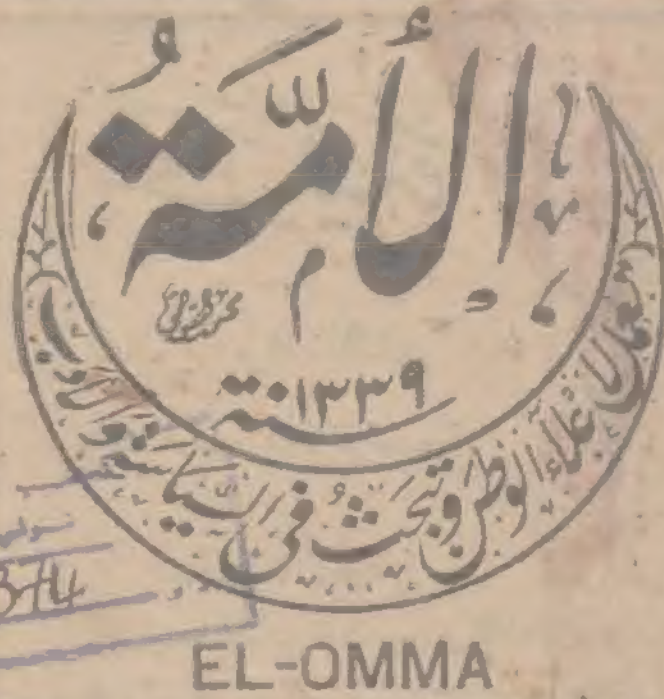 الأُمَّةُ
سنة ١٣٣٩
تعمل لإعلاء الوطن وتبحث في السياسة والأدب
EL-OMMA